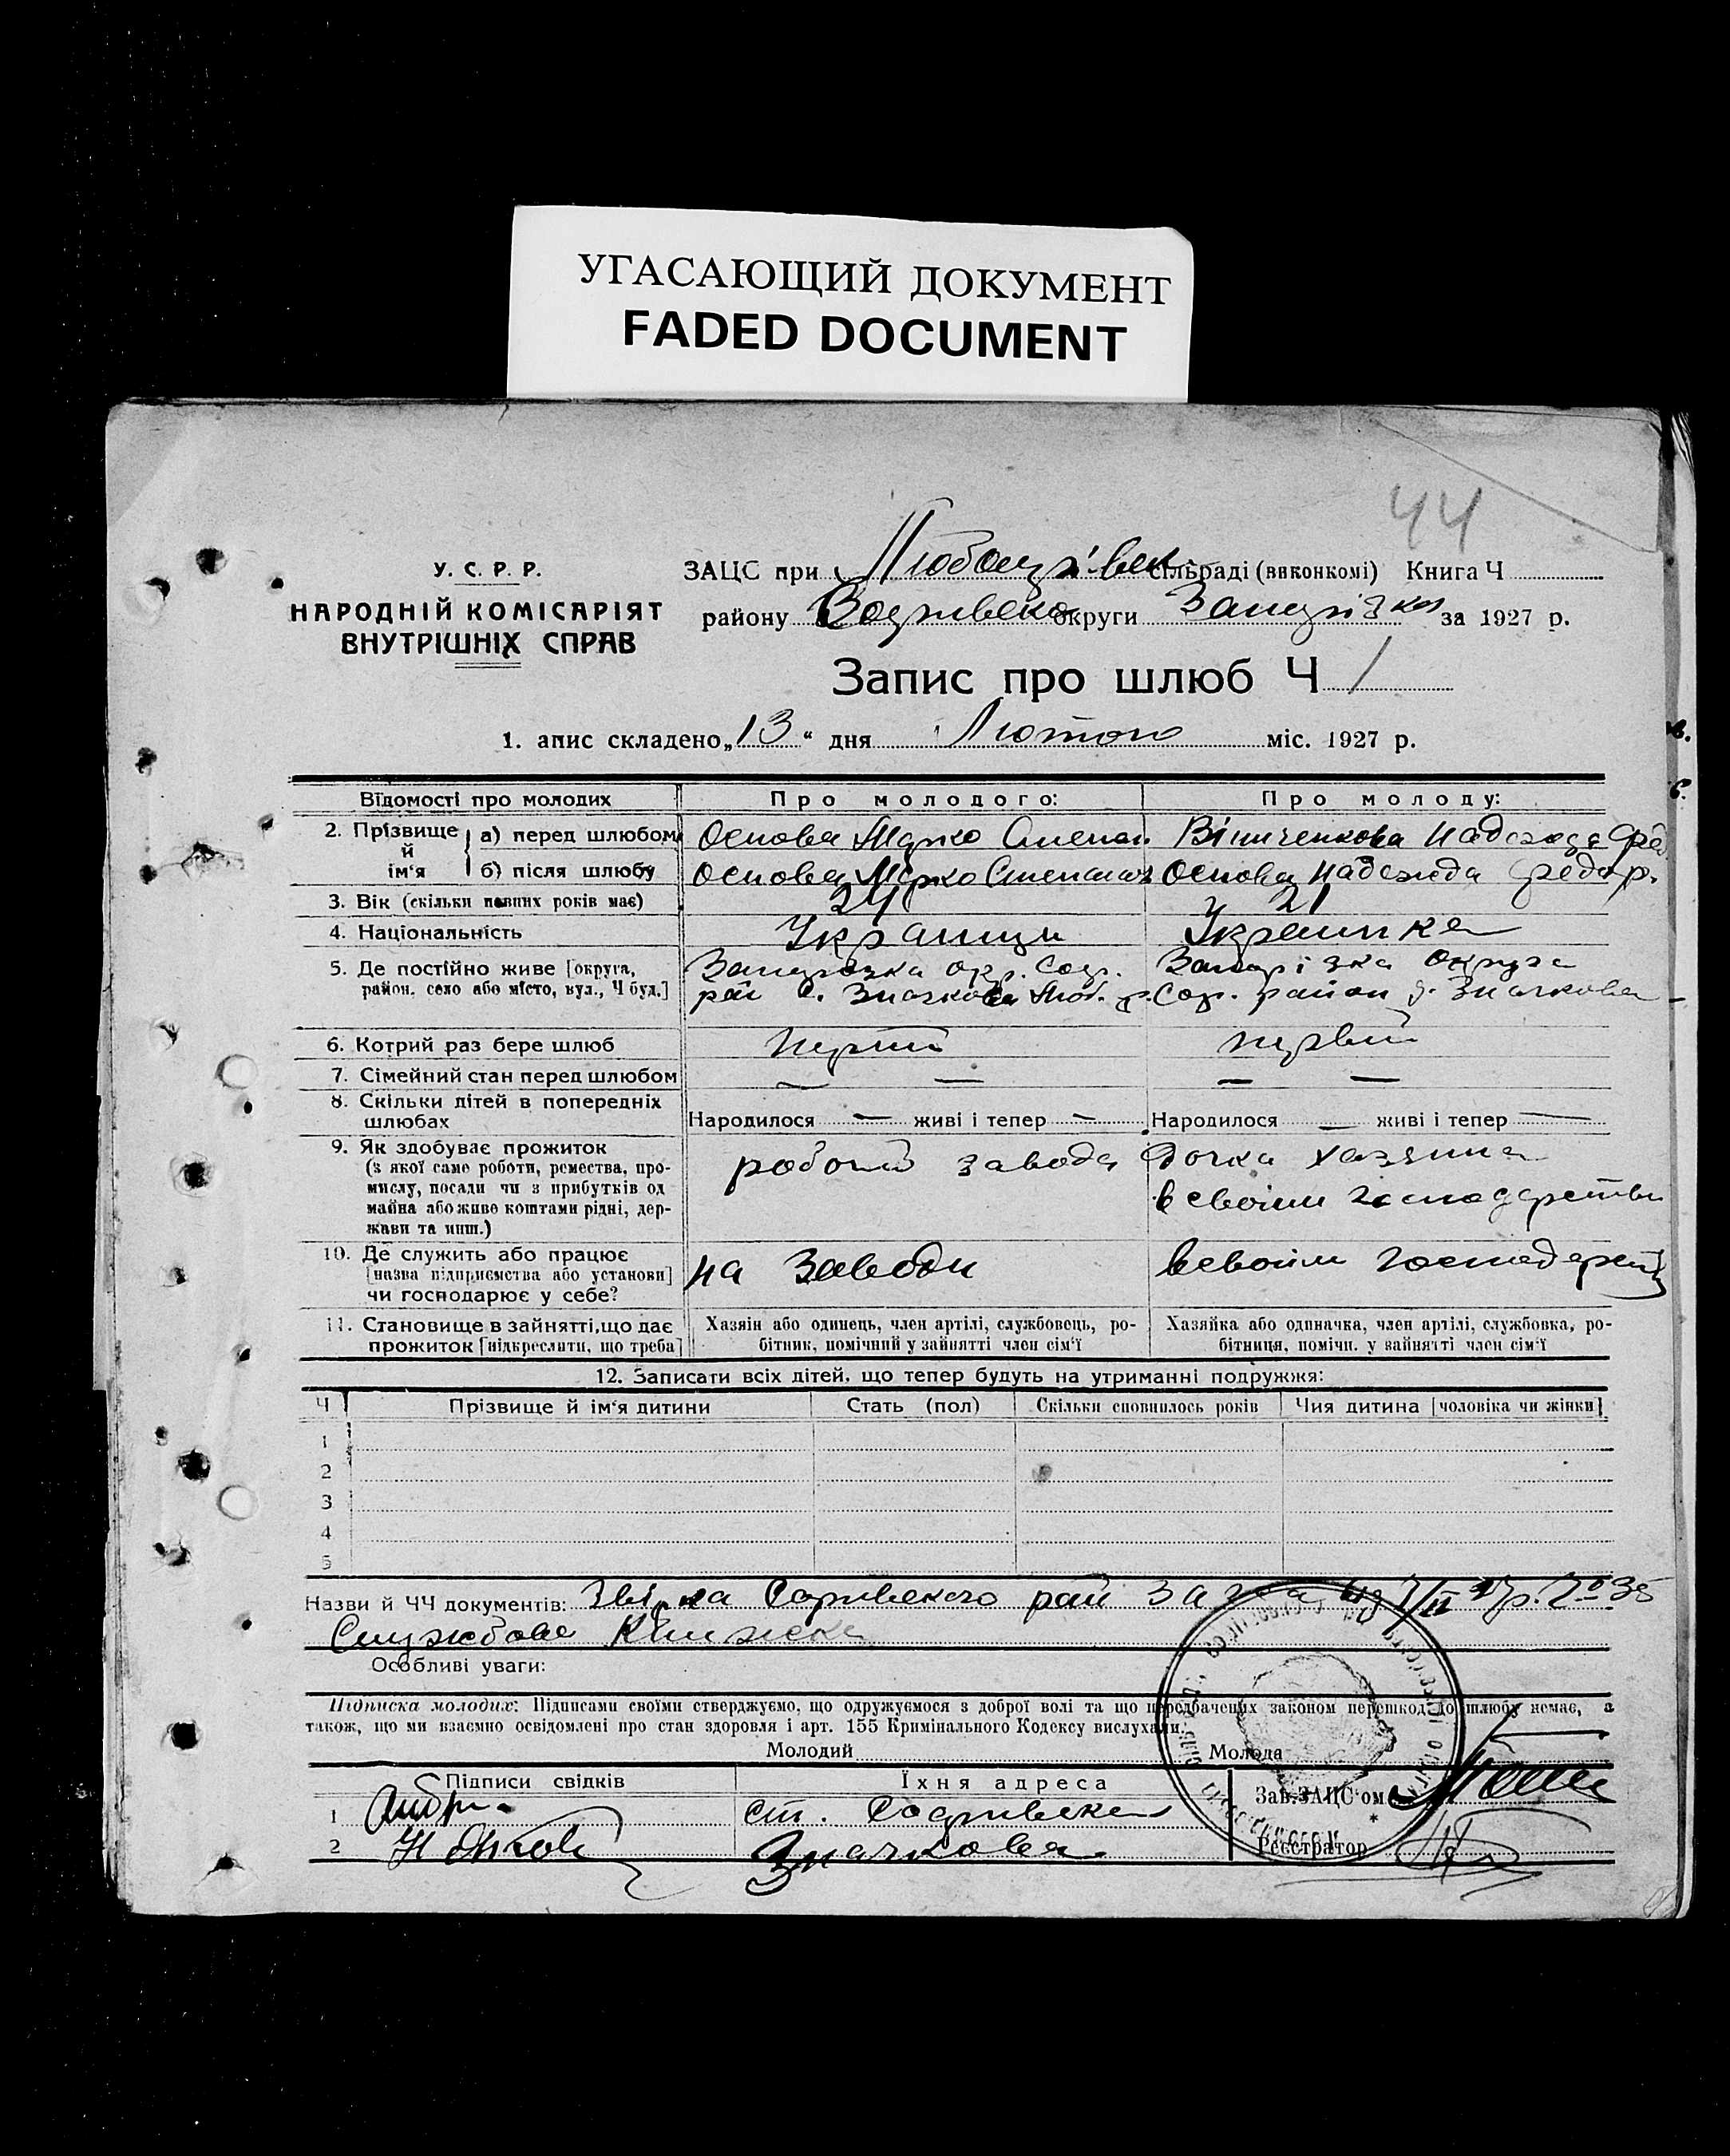 УГАСАЮЩИЙ ДОКУМЕНТ
FADED DOCUMENT
44
У. С. Р. Р.
НАРОДНІЙ КОМІСАРІЯТ
ВНУТРІШНІХ СПРАВ
ЗАЦС при сільраді (виконкомі) Книга Ч
району округи за 1927 р.
Запис про шлюб Ч 1
1. апис складено „13“ дня Лютого міс. 1927 р.
Відомості про молодих Про молодого: Про молоду:
2. Прізвище й ім'я а) перед шлюбом Основа Марко Степан. Вінниченкова Надежда Фед.
б) після шлюбу Основа Марко Степанов Основа Надежда Федор.
3. Вік (скільки повних років має) 24 21
4. Національність Украинци Украинка
5. Де постійно живе [округа, район, село або місто, вул., Ч буд.] Запорізка окр. Соф. Запорізка округа
рай с. Значкова Люб. р. Соф. район д. Значкова
6. Котрий раз бере шлюб первий
7. Сімейний стан перед шлюбом — — — —
8. Скільки дітей в попередніх шлюбах Народилося — живі і тепер — Народилося — живі і тепер —
9. Як здобуває прожиток робочий завода Дочка хазяина
(з якої саме роботи, ремества, про-
мислу, посади чи з прибутків од в своїм господарстви
майна або живе коштами рідні, дер-
жави та инш.)
10. Де служить або працює на Заводи в своїм господарств
[назва підприємства або установи]
чи господарює у себе?
11. Становище в зайнятті, що дає Хазяїн або одинець, член артілі, службовець, ро- Хазяйка або одиначка, член артілі, службовка, ро-
прожиток [підкреслити, що треба] бітник, помічний у зайнятті член сім'ї бітниця, помічн. у зайнятті член сім'ї
12. Записати всіх дітей, що тепер будуть на утриманні подружжя:
Ч Прізвище й ім'я дитини Стать (пол) Скільки сповнилось років Чия дитина [чоловіка чи жінки]
1
2
3
4
5
Назви й ЧЧ документів: Софивського рай ЗАГСА
Службова Книжка
Особливі уваги:
Підписка молодих: Підписами своїми стверджуємо, що одружуємося з доброї волі та що передбачених законом перешкод до шлюбу немає, а
також, що ми взаємно освідомлені про стан здоровля і арт. 155 Кримінального Кодексу вислухали.
Молодий Молода
Підписи свідків Їхня адреса Зав. ЗАЦС'ом
1 ст. Софиевка
2 Значкова Реєстратор